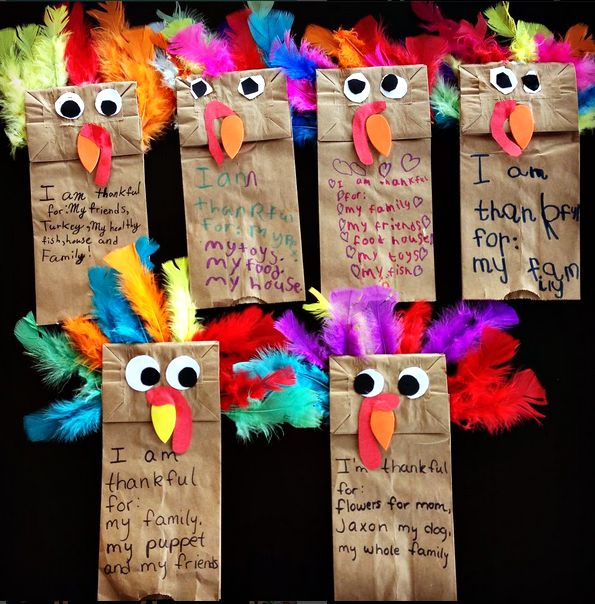 I am thankful
for: My friends,
Turkey, My healthy
fish, house and
Family!
I am
thankful
for: my
my toys.
my food.
my house
I am thankful
for:
my family
my friends
food house
my toys
my fish
I am
thankfu
for:
my fam
ily
I am
thankful
for:
my family,
my puppet
and my friends
I'm thankful
for:
flowers for mom,
Jaxon my dog,
my whole family